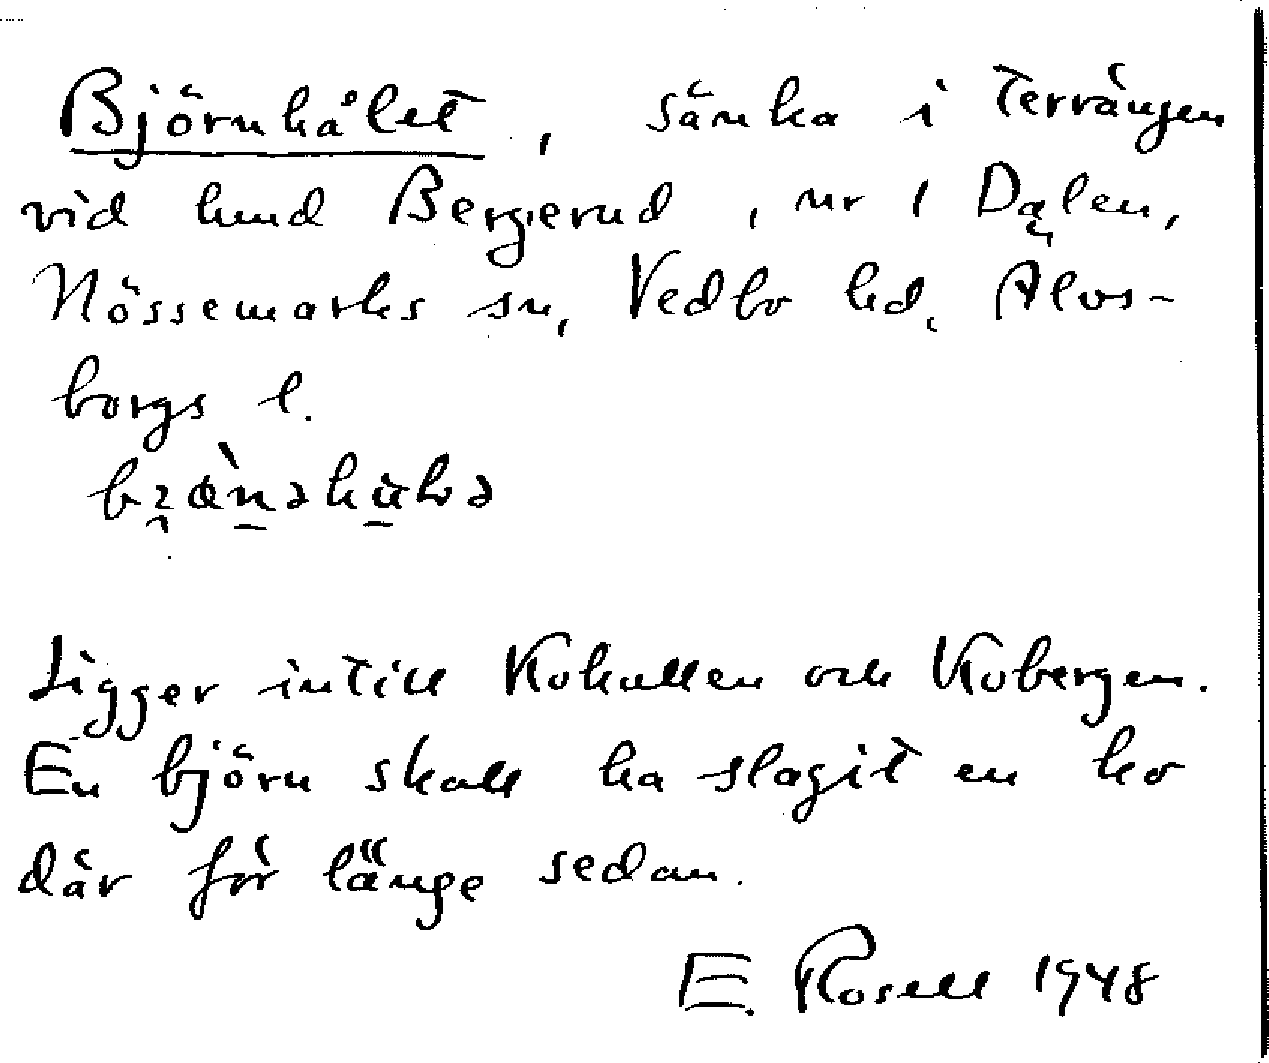 Björnhålet, sänka i terrängen
vid hmd Bergerud, nr 1 Dalen,
Nössemarks sn, Vedbo hd, Älvs-
borgs l.
Ligger intill Kokullen och Kobergen.
En björn skall ha slagit en ko
där för länge sedan.
E. Rosell 1948